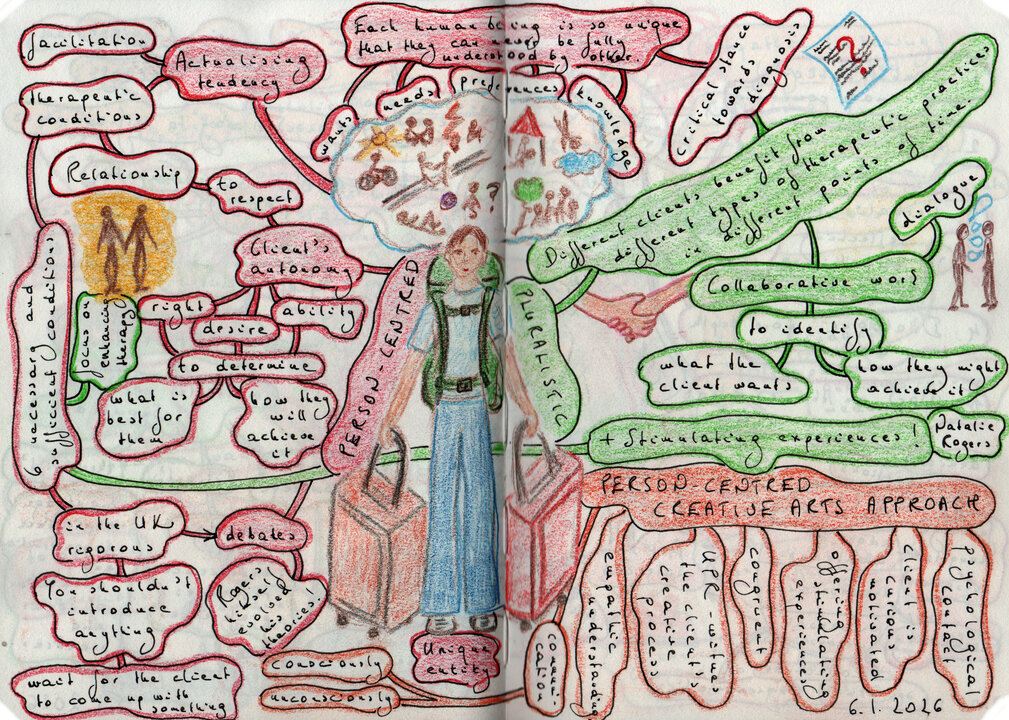 facilitation
Actualising
tendency
therapeutic
conditions
Relationship
to
respect
Each human being is so unique
that they can never be fully
understood by other.
wants
needs
preferences
knowledge
critical stance
towards
diagnosis
?
Different clients benefit from
different types of therapeutic practices
in different points of time.
dialogue
Collaborative work
to identify
what the
client wants
how they might
achieve it
Client's
autonomy
right
desire
ability
to determine
what is
best for
them
how they
will
achieve
it
focus on
enhancing
therapy
6 necessary and
sufficient conditions
PERSON-CENTRED
PLURALISTIC
?
+ Stimulating experiences!
Natalie
Rogers
PERSON-CENTRED
CREATIVE ARTS APPROACH
in the UK
rigorous
debates
You shouldn't
introduce
anything
Rogers
himself
evolved
his
theories!
wait for the client
to come up with
something
consciously
unconsciously
Unique
entity
communi-
cation
empathic
understanding
UPR - witness
the client's
creative
process
congruent
offering
stimulating
experiences
client is
curious
motivated
Psychological
contact
6.1.2026